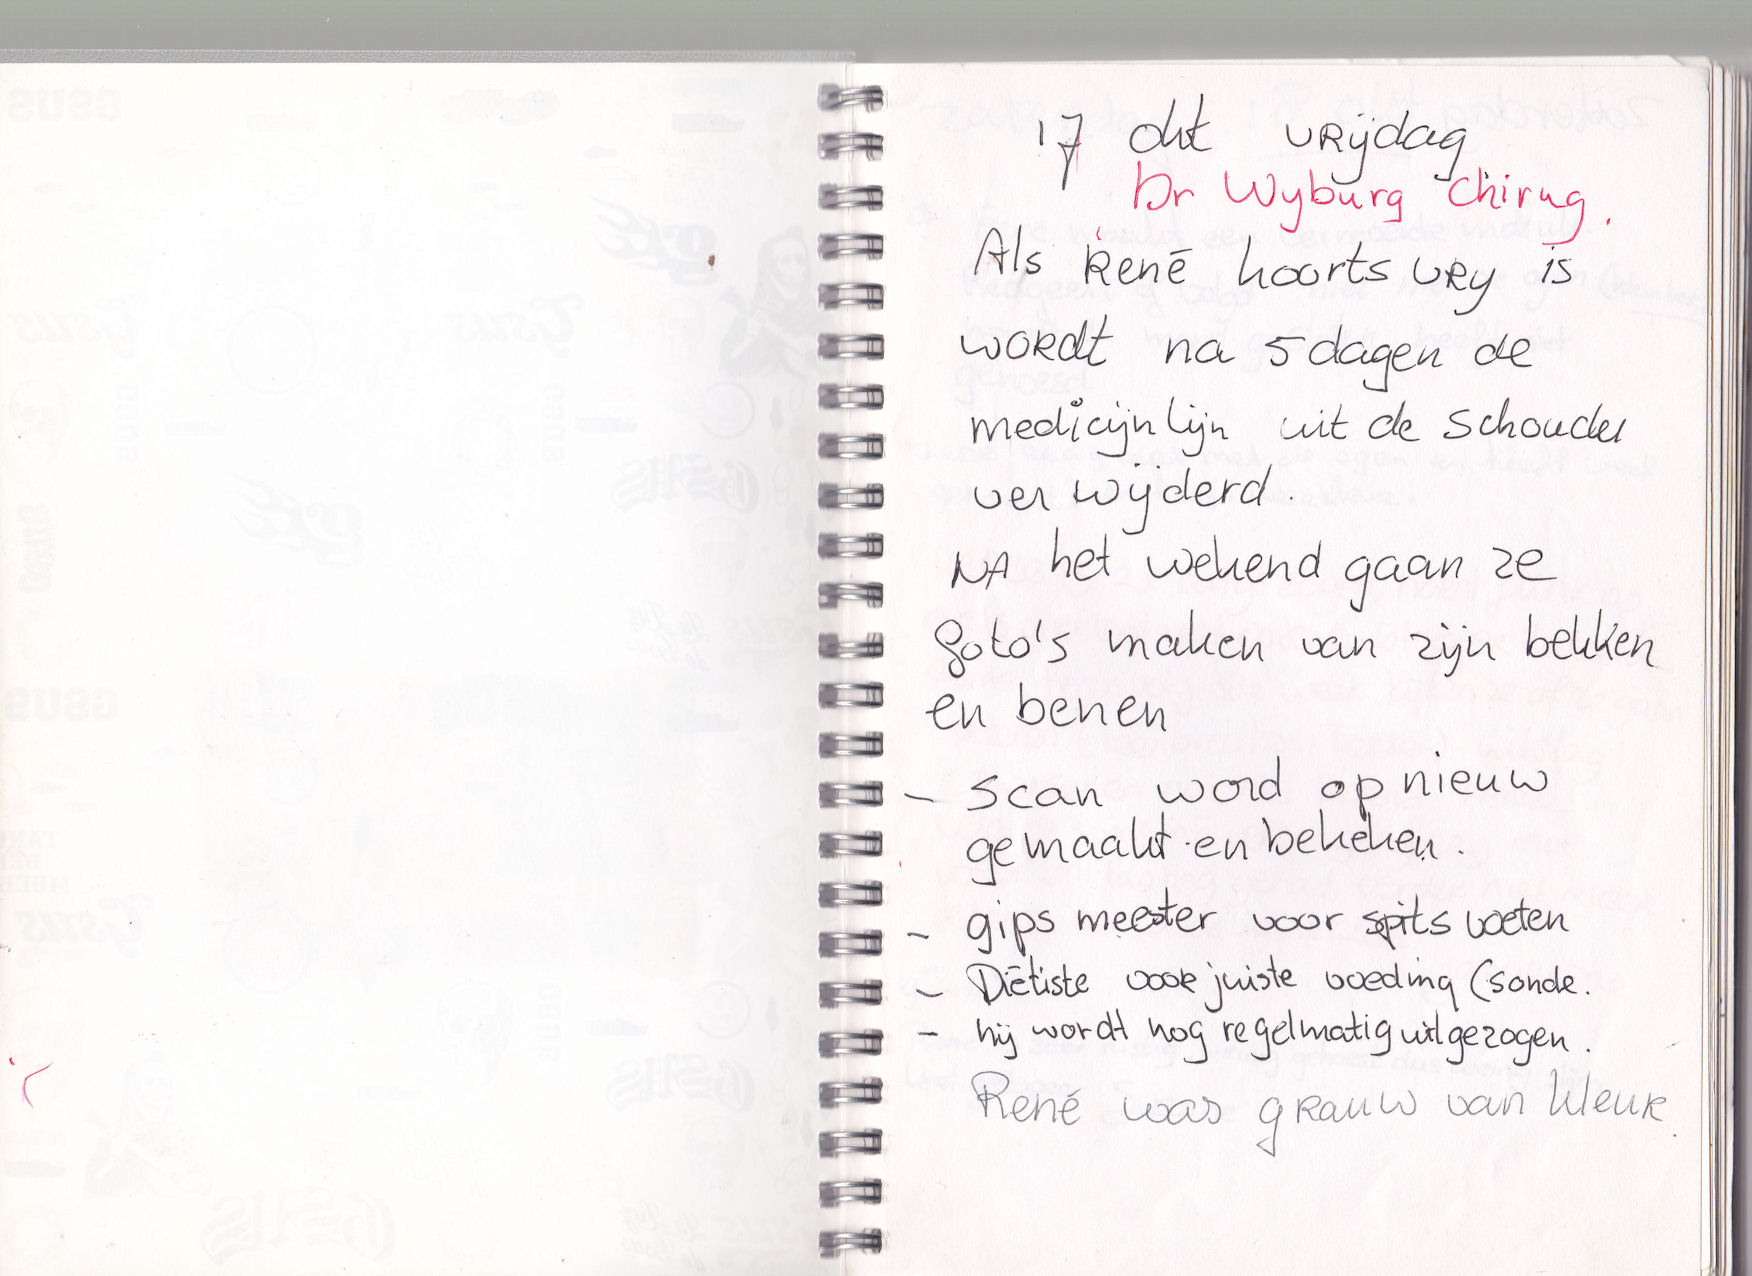 17 okt vrijdag
Dr Wyburg Chirug.
Als René koorts vry is
wordt na 5 dagen de
medicijnlijn uit de schouder
ver wijderd.
NA het wekend gaan ze
foto's maken van zijn bekken
en benen
- scan word op nieuw
gemaakt en bekeken.
- gips meester voor spits voeten
- Diëtiste voor juiste voeding (sonde.
- hij wordt nog regelmatig uitgezogen.
René was grauw van kleur